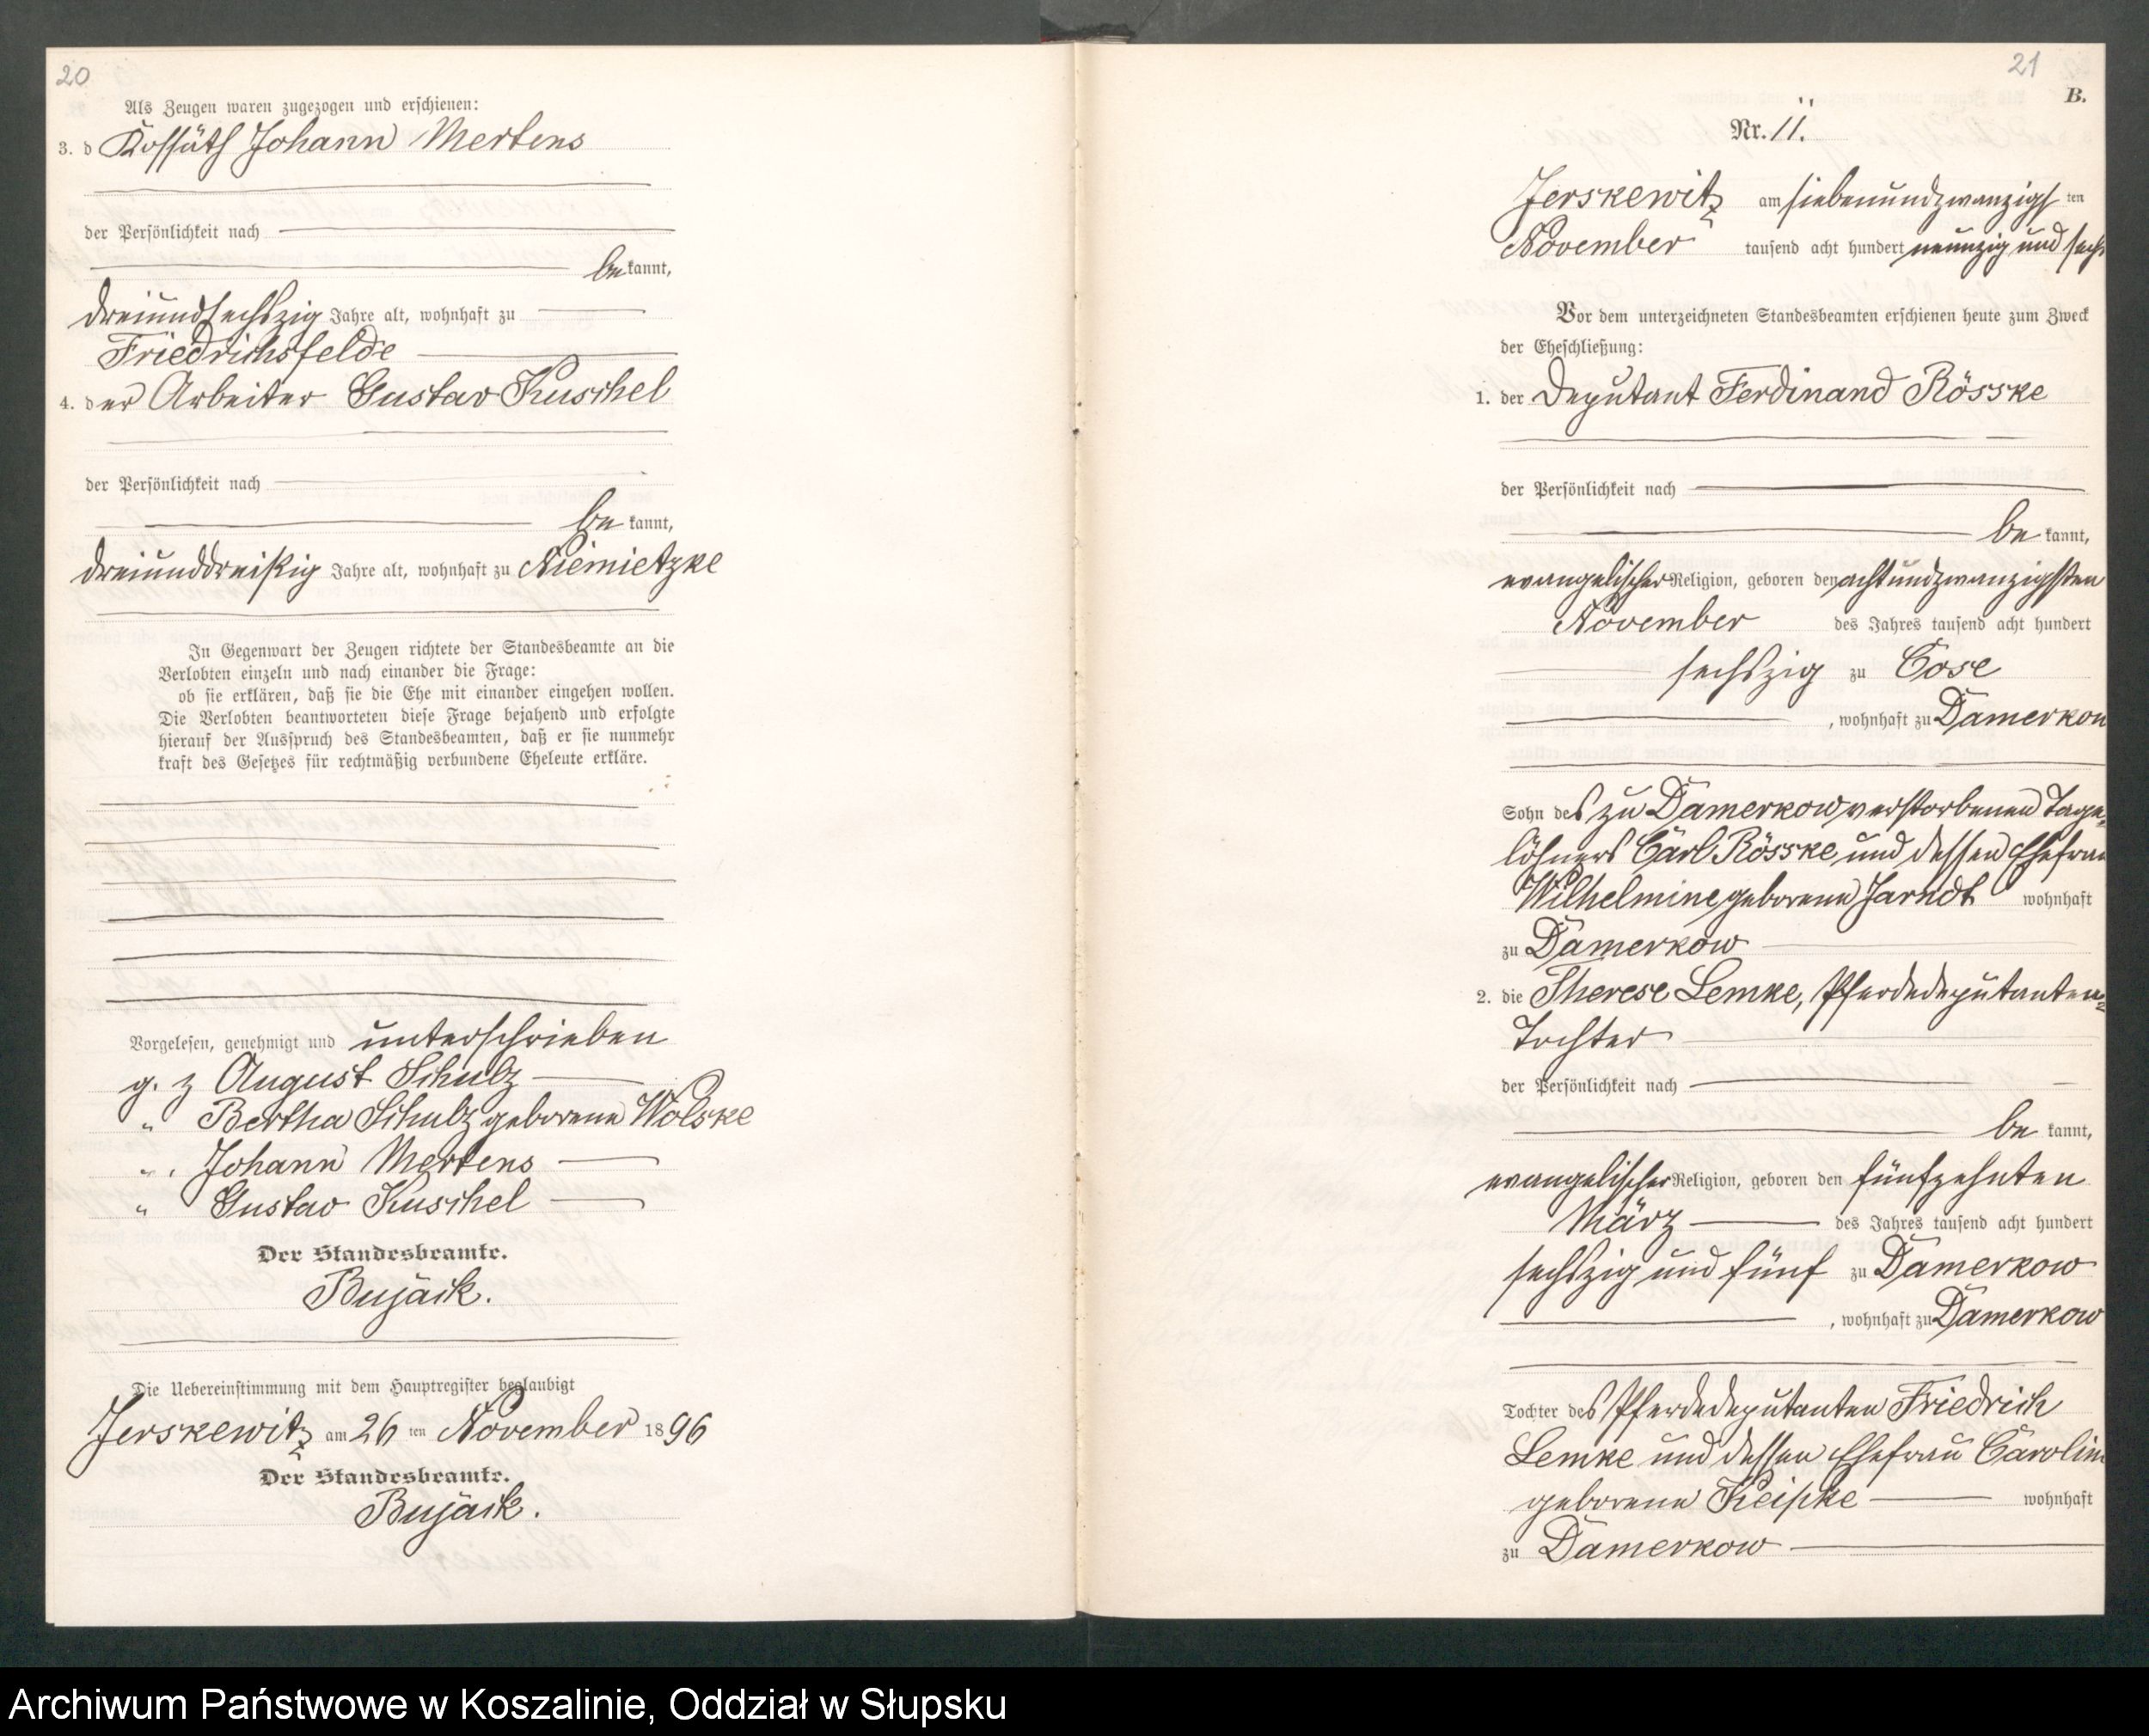 20
Als Zeugen waren zugezogen und erschienen:
3. d Kossäth Johann Mertens
der Persönlichkeit nach
be kannt,
dreiundsechszig Jahre alt, wohnhaft zu
Friedrichsfelde
4. der Arbeiter Gustav Kuschel
der Persönlichkeit nach
be kannt,
dreiunddreißig Jahre alt, wohnhaft zu Niemietzke
In Gegenwart der Zeugen richtete der Standesbeamte an die
Verlobten einzeln und nach einander die Frage:
ob sie erklären, daß sie die Ehe mit einander eingehen wollen.
Die Verlobten beantworteten diese Frage bejahend und erfolgte
hierauf der Ausspruch des Standesbeamten, daß er sie nunmehr
kraft des Gesetzes für rechtmäßig verbundene Eheleute erkläre.
Vorgelesen, genehmigt und unterschrieben
g. z August Schulz
" Bertha Schulz geborene Wolske
" Johann Mertens
" Gustav Kuschel
Der Standesbeamte.
Bujack.
Die Uebereinstimmung mit dem Hauptregister beglaubigt
Jerskewitz am 26 ten November 1896
Der Standesbeamte.
Bujack.
21
B.
Nr. 11.
Jerskewitz am siebenundzwanzigsten
November tausend acht hundert neunzig und sechs
Vor dem unterzeichneten Standesbeamten erschienen heute zum Zweck
der Eheschließung:
1. der Deputant Ferdinand Rösske
der Persönlichkeit nach
be kannt,
evangelischer Religion, geboren den achtundzwanzigsten
November des Jahres tausend acht hundert
sechszig zu Cose
, wohnhaft zu Damerkow
Sohn des zu Damerkow verstorbenen Tage=
löhners Carl Rösske und dessen Ehefrau
Wilhelmine geborene Jarndt wohnhaft
zu Damerkow
2. die Therese Lemke, Pferdedeputanten=
Tochter
der Persönlichkeit nach
be kannt,
evangelischer Religion, geboren den fünfzehnten
März des Jahres tausend acht hundert
sechszig und fünf zu Damerkow
, wohnhaft zu Damerkow
Tochter des Pferdedeputanten Friedrich
Lemke und dessen Ehefrau Caroline
geborene Keipke wohnhaft
zu Damerkow
Archiwum Państwowe w Koszalinie, Oddział w Słupsku